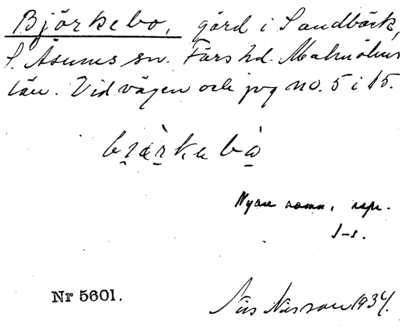 Björkebo, gård i Sandbäck,
S. Åsums sn. Färs hd. Malmöhus
län. Vid vägen och jvg no. 5 i 15.
Nyare namn,
Nr 5601.
Nils Nilsson 1934.